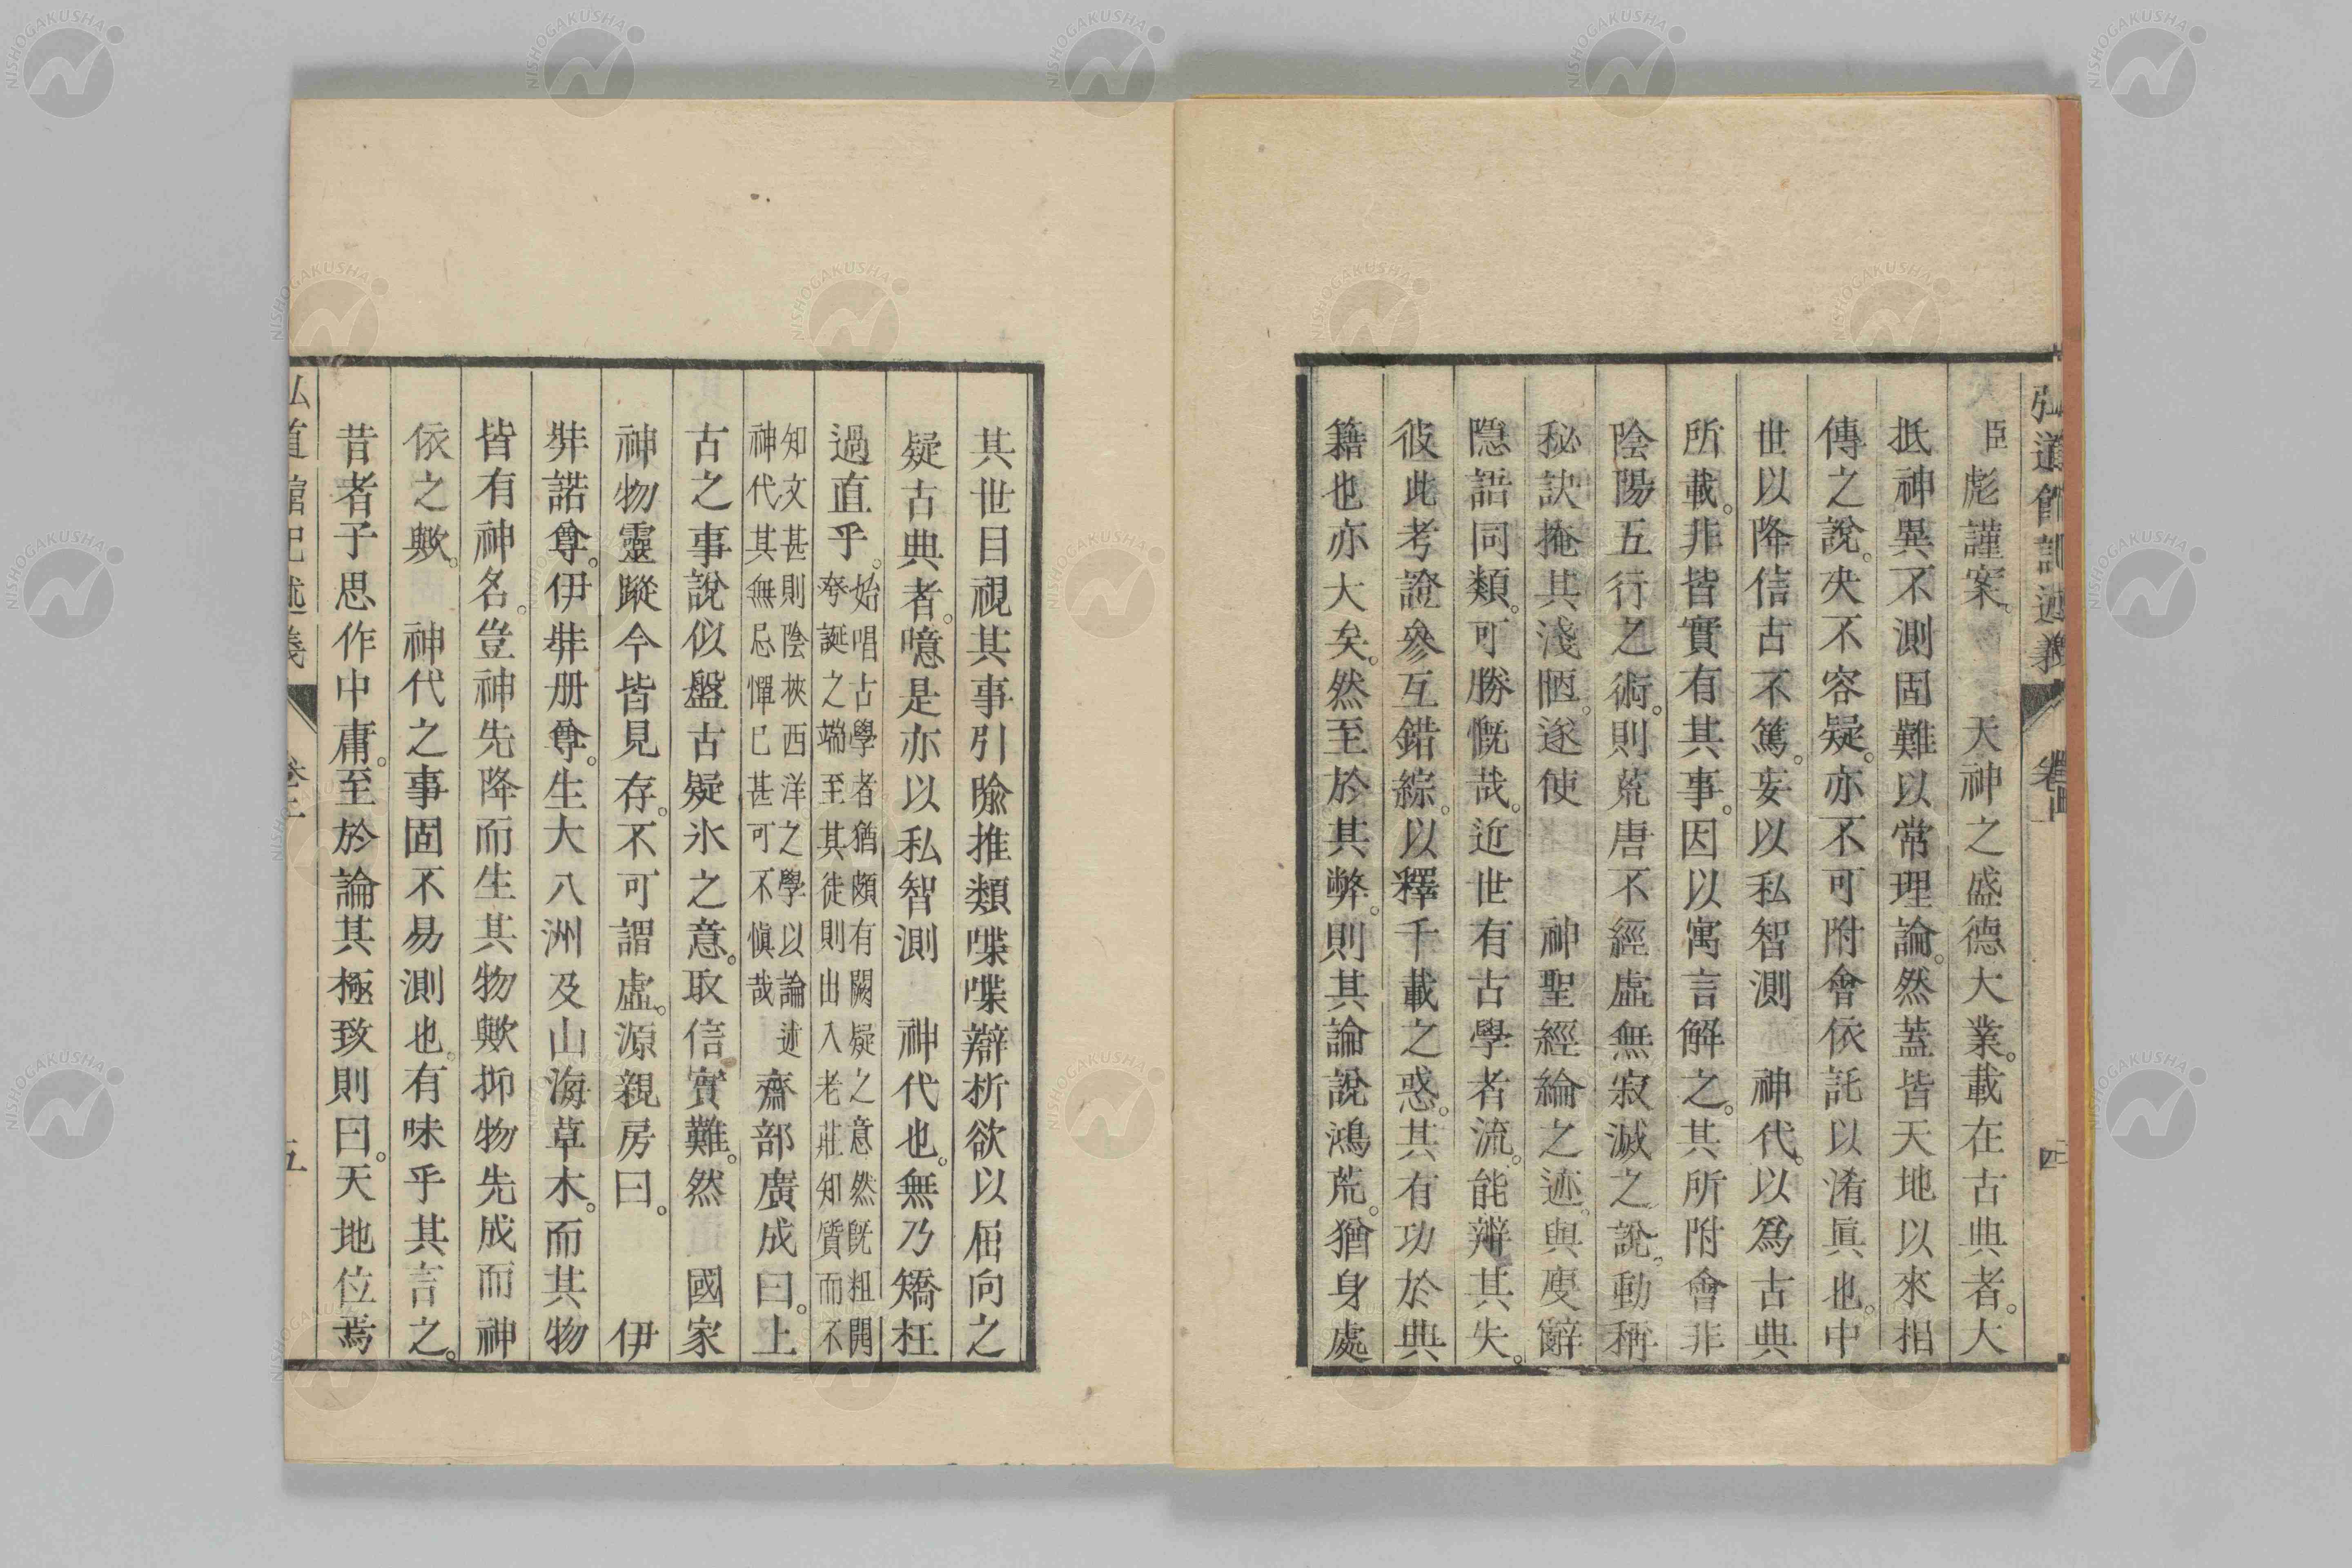 弘道館記述義 卷上 四
臣彪謹案。 天神之盛德大業。載在古典者。大
抵神異不測固難以常理論。然蓋皆天地以來相
傳之說。決不容疑。亦不可附會依託以淆眞也。中
世以降信古不篤。妄以私智測 神代。以爲古典
所載。非皆實有其事。因以寓言解之。其所附會非
陰陽五行之術。則荒唐不經虛無寂滅之說。動稱
秘訣掩其淺陋。遂使 神聖經綸之迹。與廋辭
隱語同類。可勝慨哉。近世有古學者流。能辨其失。
彼此考證參互錯綜。以釋千載之惑。其有功於典
籍也亦大矣。然至於其弊。則其論說鴻荒。猶身處
其世目視其事引喩推類喋喋辯析欲以屈向之
疑古典者。噫是亦以私智測 神代也。無乃矯枉
過直乎。始唱古學者猶頗有闕疑之意然旣粗開
夸誕之端至其徒則出入老莊知質而不
知文甚則陰挾西洋之學以論述
神代其無忌憚已甚可不愼哉 齋部廣成曰。上
古之事說似盤古疑氷之意。取信實難。然 國家
神物靈蹤今皆見存。不可謂虛。源親房曰。 伊
弉諾尊。伊弉册尊。生大八洲及山海草木。而其物
皆有神名。豈神先降而生其物歟抑物先成而神
依之歟。 神代之事固不易測也。有味乎其言之。
昔者子思作中庸。至於論其極致則曰。天地位焉
弘道館記述義 卷上 五
NISHOGAKUSHA